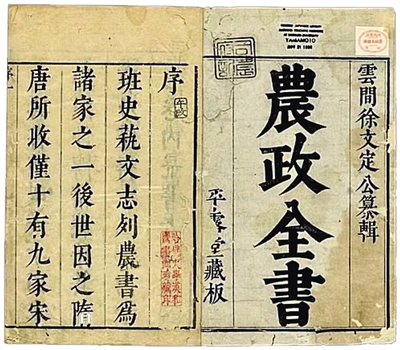 雲間徐文定公纂輯
農政全書
平露堂藏板
YAMAMOTO
序
班史蓺文志列農書為
諸家之一後世因之隋
唐所收僅十有九家宋